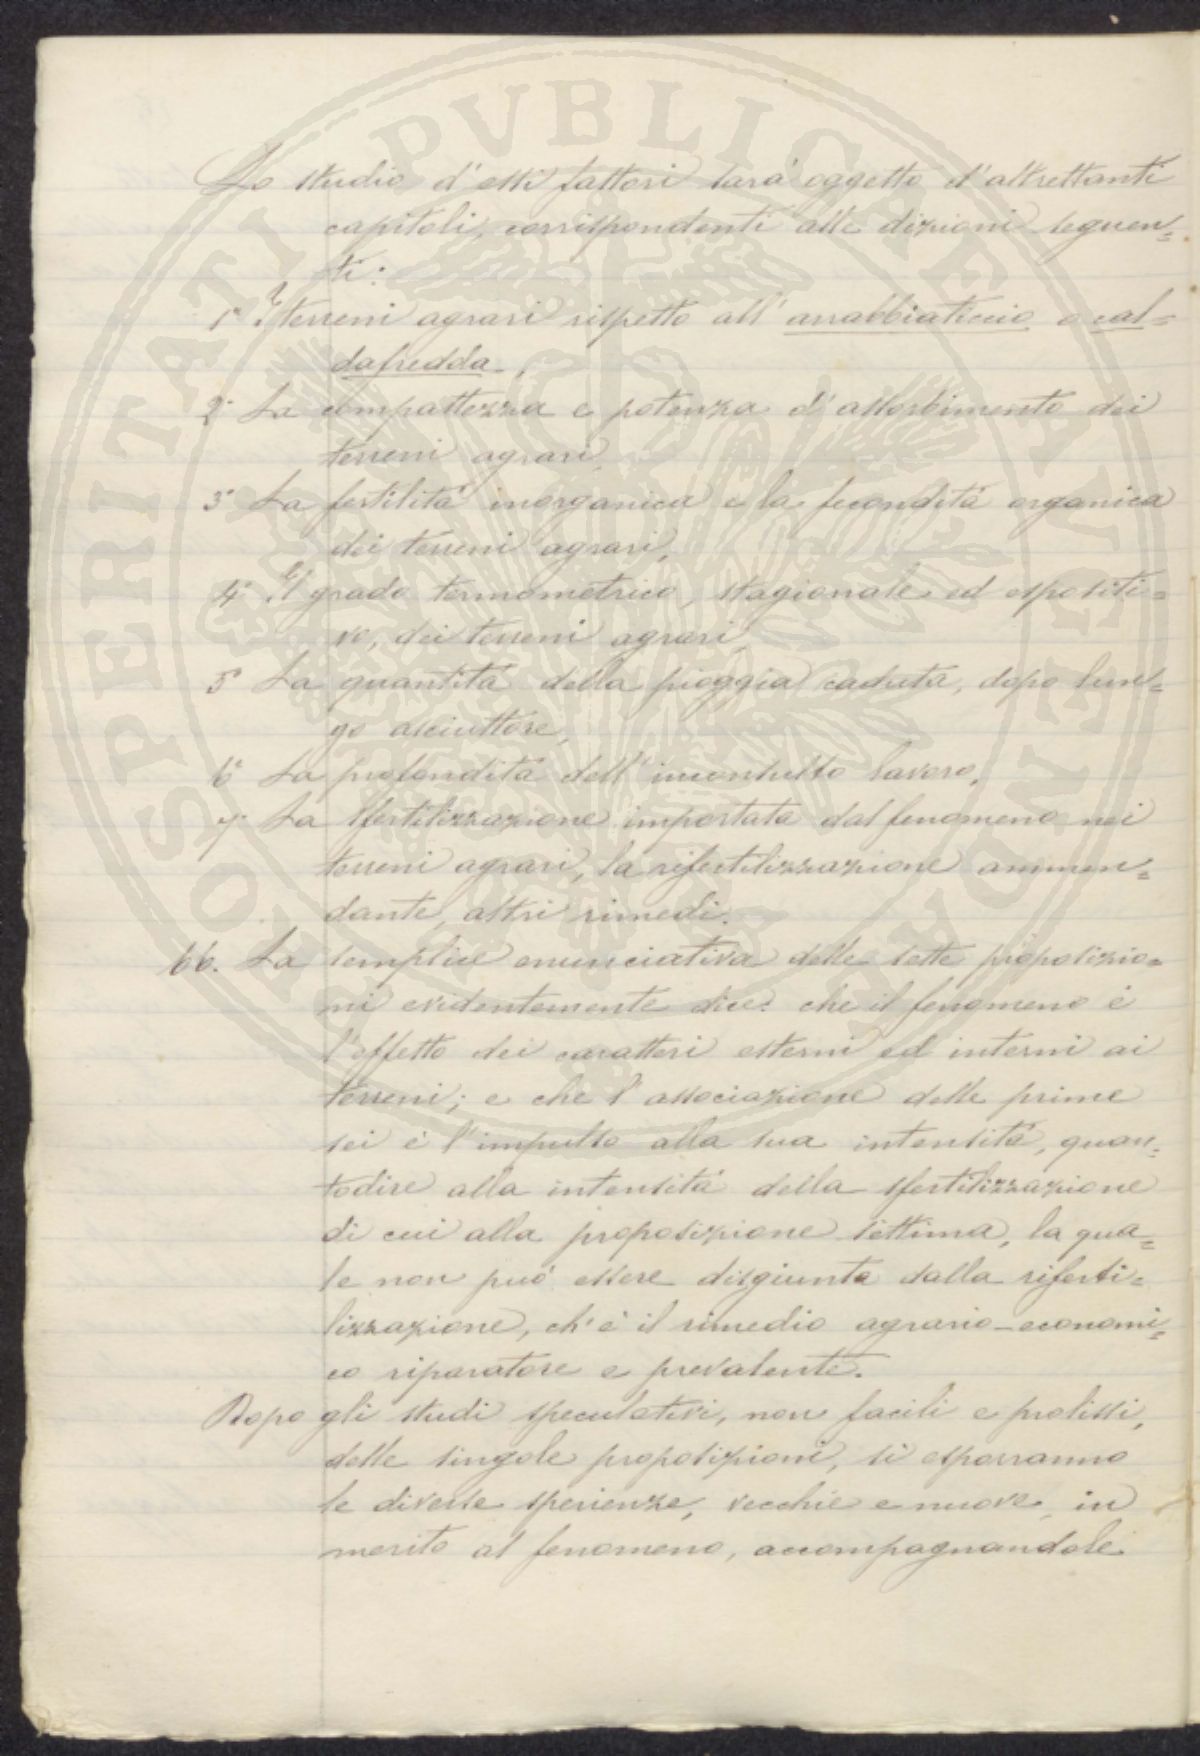 Lo studio d'essi fattori sarà oggetto d'altrettanti
capitoli, corrispondenti alle dizioni seguen=
ti:
1° I terreni agrari rispetto all'arrabbiaticcio o cal=
dafredda,
2° La compattezza e potenza d'assorbimento dei
terreni agrari,
3° La fertilità inorganica e la fecondità organica
dei terreni agrari,
4° Il grado termometrico, stagionale ed espositi=
vo, dei terreni agrari,
5° La quantità della pioggia caduta, dopo lun=
go asciuttore,
6° La profondità dell'inconsulto lavoro,
7° La sfertilizzazione importata dal fenomeno nei
terreni agrari, la rifertilizzazione ammen=
dante, altri rimedi.
66. La semplice enunciativa delle sette proposizio=
ni evidentemente dice: che il fenomeno è
l'effetto dei caratteri esterni ed interni ai
terreni; e che l'associazione delle prime
sei è l'impulso alla sua intensità, quan=
todire alla intensità della sfertilizzazione
di cui alla proposizione settima, la qua=
le non può essere disgiunta dalla riferti=
lizzazione, ch'è il rimedio agrario-economi=
co riparatore e prevalente.
Dopo gli studi speculativi, non facili e prolissi,
delle singole proposizioni, si esporranno
le diverse sperienze, vecchie e nuove, in
merito al fenomeno, accompagnandole
PROSPERITATI PVBLICAE AVGENDAE